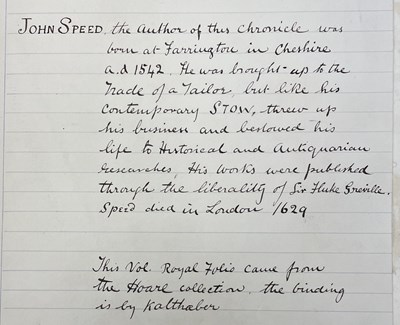 JOHN SPEED. the Author of this Chronicle was
born at Farrington in Cheshire
a.d 1542. He was brought up to the
Trade of a Tailor, but like his
contemporary STOW, threw up
his business and bestowed his
life to Historical and Antiquarian
researches, His works were published
through the liberality of Sir Fluke Greville.
Speed died in London 1629
This Vol. Royal Folio came from
the Hoare collection. the binding
is by Kalthœber